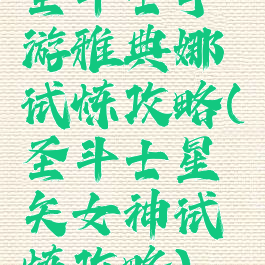 圣斗士手
游雅典娜
试炼攻略(
圣斗士星
矢女神试
炼攻略)